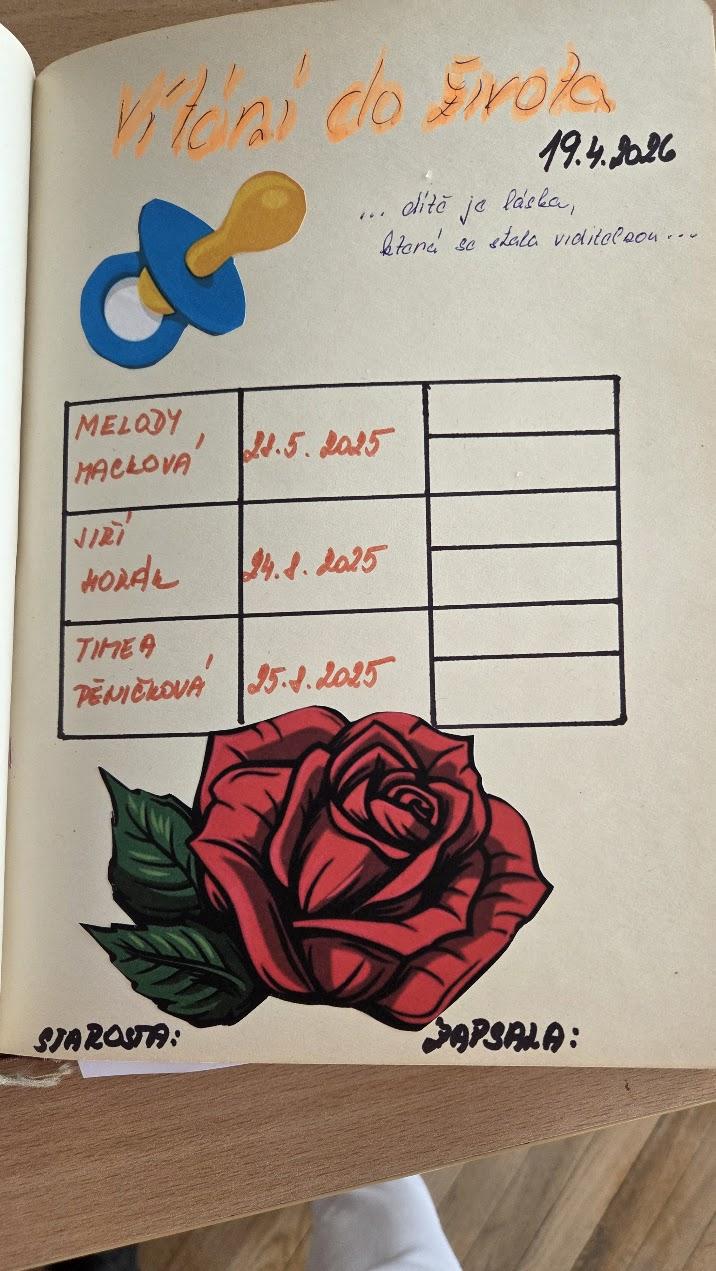 Vítání do života
19.4.2026
... dítě je láska,
která se stala viditelnou ...
MELODY
MACKOVÁ
21.5.2025
JIŘÍ
HORÁK
24.8.2025
TIMEA
PĚNIČKOVÁ
25.8.2025
STAROSTA:
ZAPSALA: